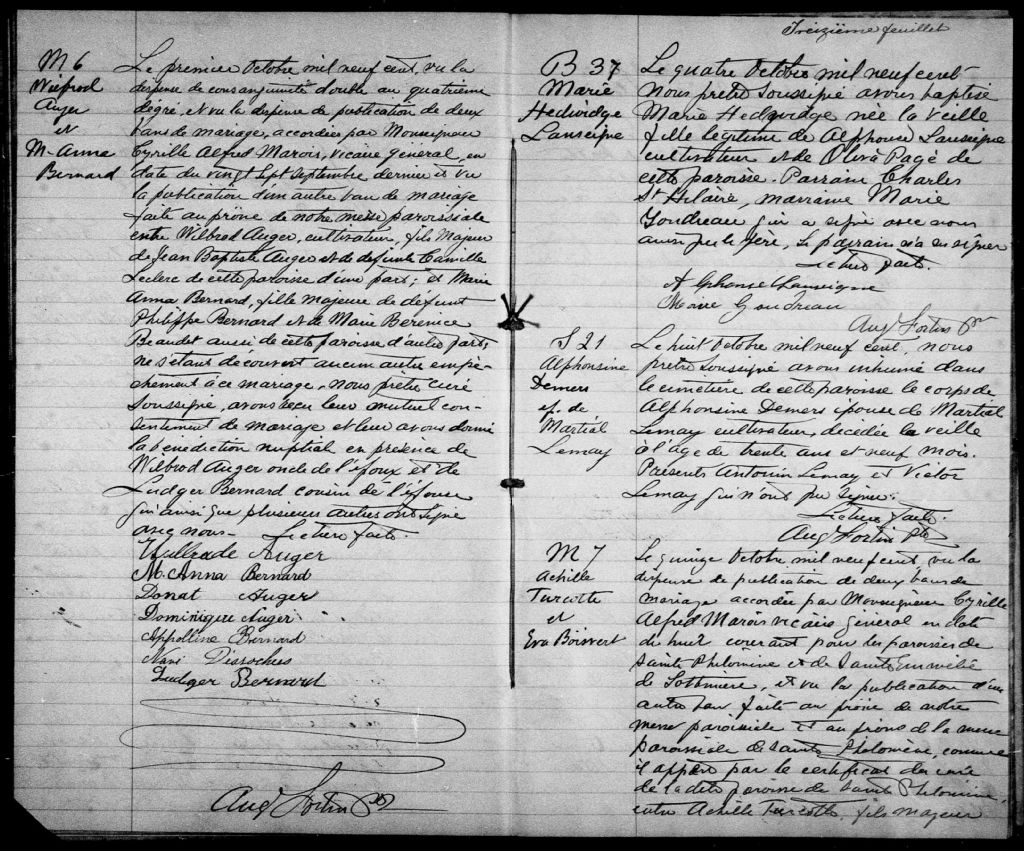 M 6
Wilfrod
Auger
et
M-Anna
Bernard
Le premier Octobre mil neuf cent, vu la
dispense de consanguinité double au quatrième
dégré, et vu la dispense de publication de deux
bans de mariage, accordées par Monseigneur
Cyrille Alfred Marois, vicaire général, en
date du vingt sept septembre dernier et vu
la publication d'un autre ban de mariage
faite au prône de notre messe paroissiale
entre Wilbrod Auger, cultivateur, fils Majeur
de Jean Baptiste Auger et de defunte Camille
Leclerc de cette paroisse d'une part; et Marie
Anna Bernard, fille majeure de defunt
Philippe Bernard et de Marie Berénice
Beaudet aussi de cette paroisse d'autre part,
ne s'étant découvert aucun autre empê-
chement à ce mariage, nous prêtre curé
soussigné, avons reçu leur mutuel con-
sentement de mariage et leur avons donné
la bénédiction nuptial en présence de
Wilbrod Auger oncle de l'époux et de
Ludger Bernard cousin de l'épouse
qui ainsi que plusieurs autres ont signé
avec nous. Lecture faite.
Auger
M. Anna Bernard
Donat Auger
Dominique Auger
Appolline Bernard
Desroches
Ludger Bernard
Aug Fortin Ptre
Treizième feuillet
B 37
Marie
Hedwidge
Lauseigne
Le quatre Octobre mil neuf cent
nous prêtre soussigné avons baptisé
Marie Hedwidge née la veille
fille légitime de Alphonse Lauseigne
cultivateur et de Oliva Pagé de
cette paroisse. Parrain Charles
St Hilaire, marraine Marie
Goudreau qui a signé avec nous
ainsi que le père, le parrain n'a su signer
Lecture faite.
Alphonse Lauseigne
Marie Goudreau
Aug Fortin Ptre
S 21
Alphonsine
Demers
ép. de
Martial
Lemay
Le huit Octobre mil neuf cent, nous
prêtre soussigné avons inhumé dans
le cimetière de cette paroisse le corps de
Alphonsine Demers épouse de Martial
Lemay cultivateur, décédée la veille
à l'âge de trente ans et neuf mois.
Présents Antonin Lemay et Victor
Lemay qui n'ont pu signer.
Lecture faite.
Aug Fortin Ptre
M 7
Achille
Turcotte
et
Eva Boisvert
Le quinze Octobre mil neuf cent, vu la
dispense de publication de deux bans de
mariage accordée par Monseigneur Cyrille
Alfred Marois vicaire général en date
du huit courant pour les paroisses de
Sainte Philomène et de Sainte Emmélie
de Lotbinière, et vu la publication d'un
autre ban faite au prône de notre
messe paroissiale et au prône de la messe
paroissiale de Sainte Philomène, comme
il appert par le certificat du curé
de la dite paroisse de Sainte Philomène,
entre Achille Turcotte, fils majeur